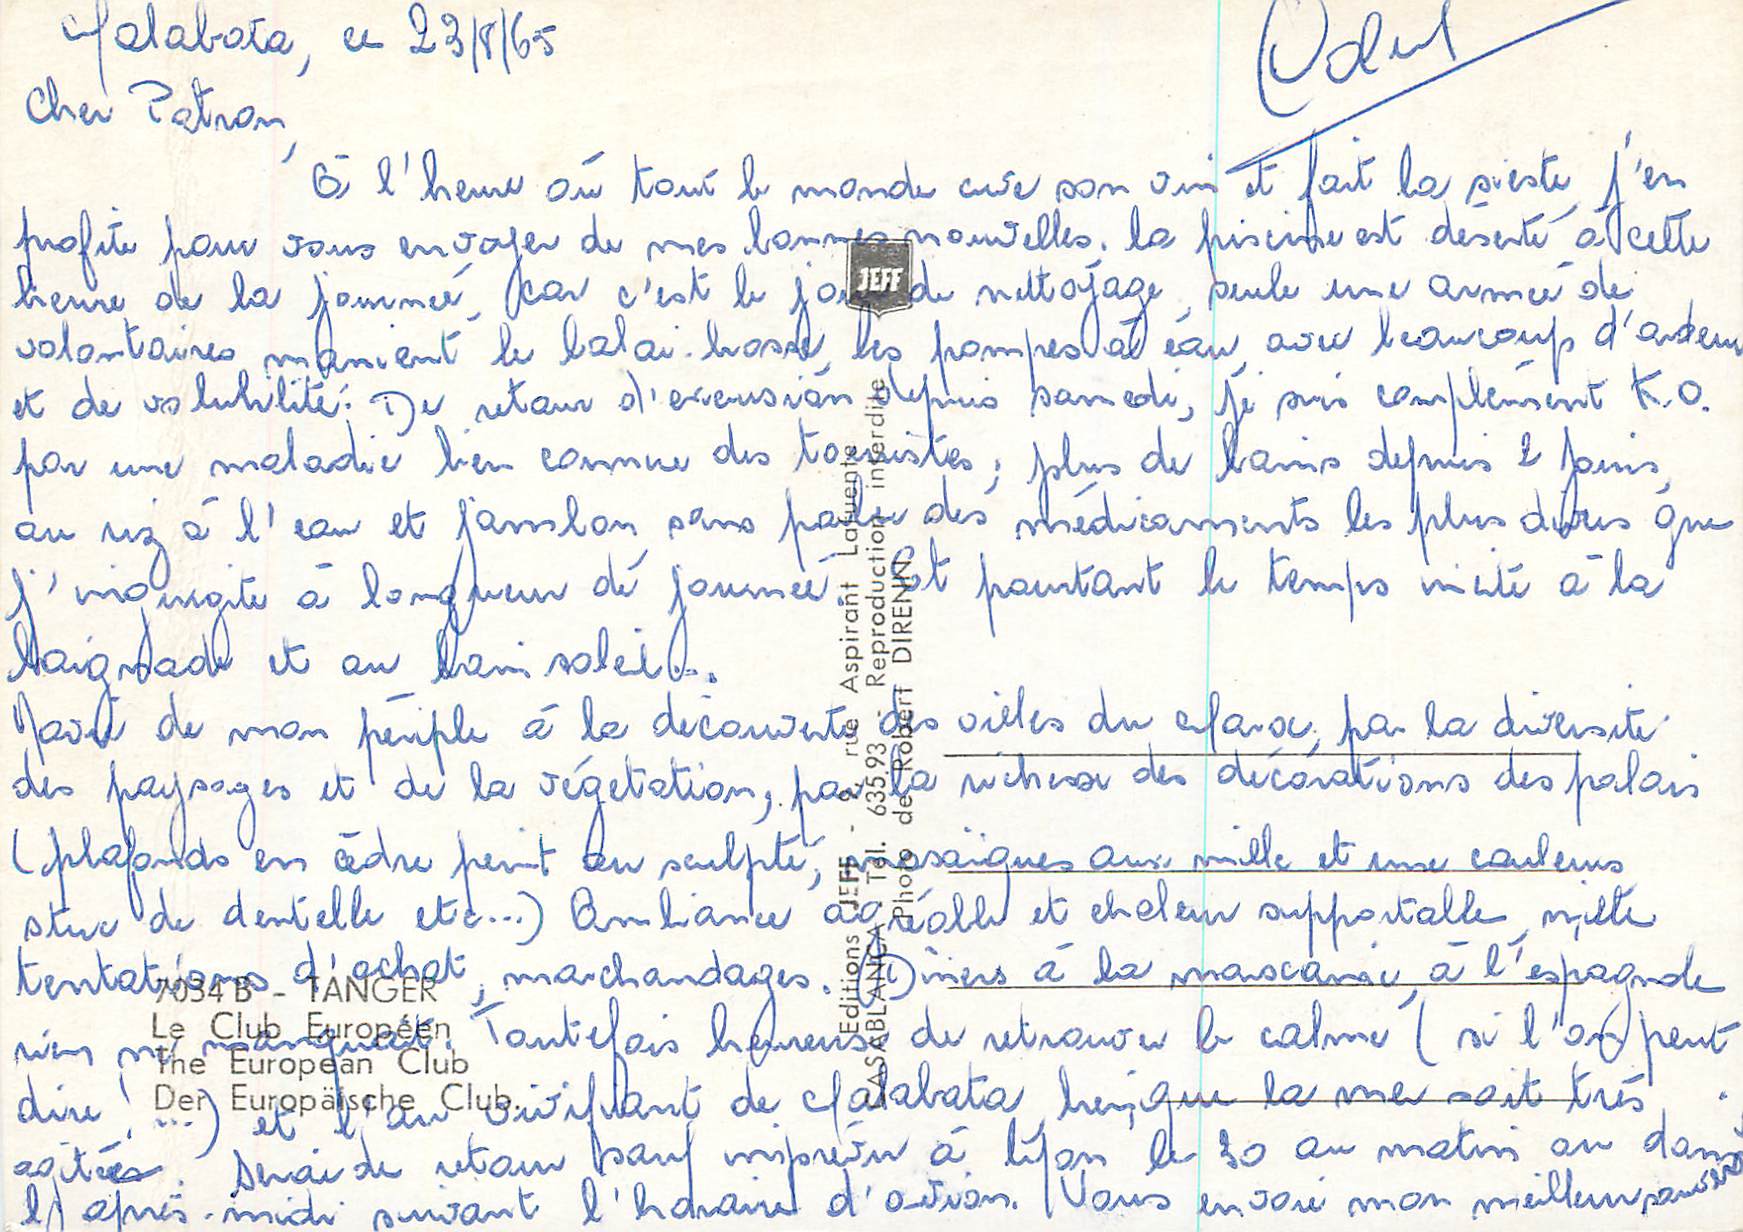 Malabata, ce 23/8/65
Cher Patron,
A l'heure où tout le monde cuve son vin et fait la sieste, j'en
profite pour vous envoyer de mes bonnes nouvelles. la piscine est désertée à cette
heure de la journée, car c'est le jour de nettoyage, seule une armée de
volontaires manient le balai-brosse, les pompes à eau avec beaucoup d'ardeur
et de volubilité. De retour d'excursion depuis samedi, je suis complèment K.O.
par une maladie bien connue des touristes, plus de bains depuis 2 jours,
au riz à l'eau et jambon sans parler des médicaments les plus divers que
j'ingurgite à longueur de journée. Et pourtant le temps incite à la
baignade et au bain soleil...
Ravie de mon périple à la découverte des villes du Maroc, par la diversité
des paysages et de la végétation, par la richesse des décorations des palais
(plafonds en cèdre peint ou sculpté, mosaïques aux mille et une couleurs
stuc de dentelle etc...) Ambiance agréable et chaleur supportable, mille
tentations d'achat, marchandages. Dîners à la marocaine, à l'espagnole
rien ne manquait. Toutefois heureuse de retrouver le calme (si l'on peut
dire !...) et l'air vivifiant de Malabata, bien que la mer soit très
agitée. Serai de retour sauf imprévu à Lyon le 30 au matin ou dans
l'après-midi suivant l'horaire d'avion. Vous envoie mon meilleur souvenir
JEFF
Editions JEFF - 9, rue Aspirant Lafuente
CASABLANCA Tél. 635.93 - Reproduction interdite
Photo de Robert DIRENN
7034 B - TANGER
Le Club Européen
The European Club
Der Europäische Club.